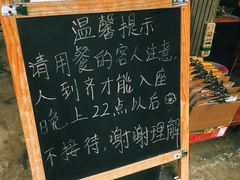 温馨提示
请用餐的客人注意,
人到齐才能入座
晚上22点以后
不接待,谢谢理解